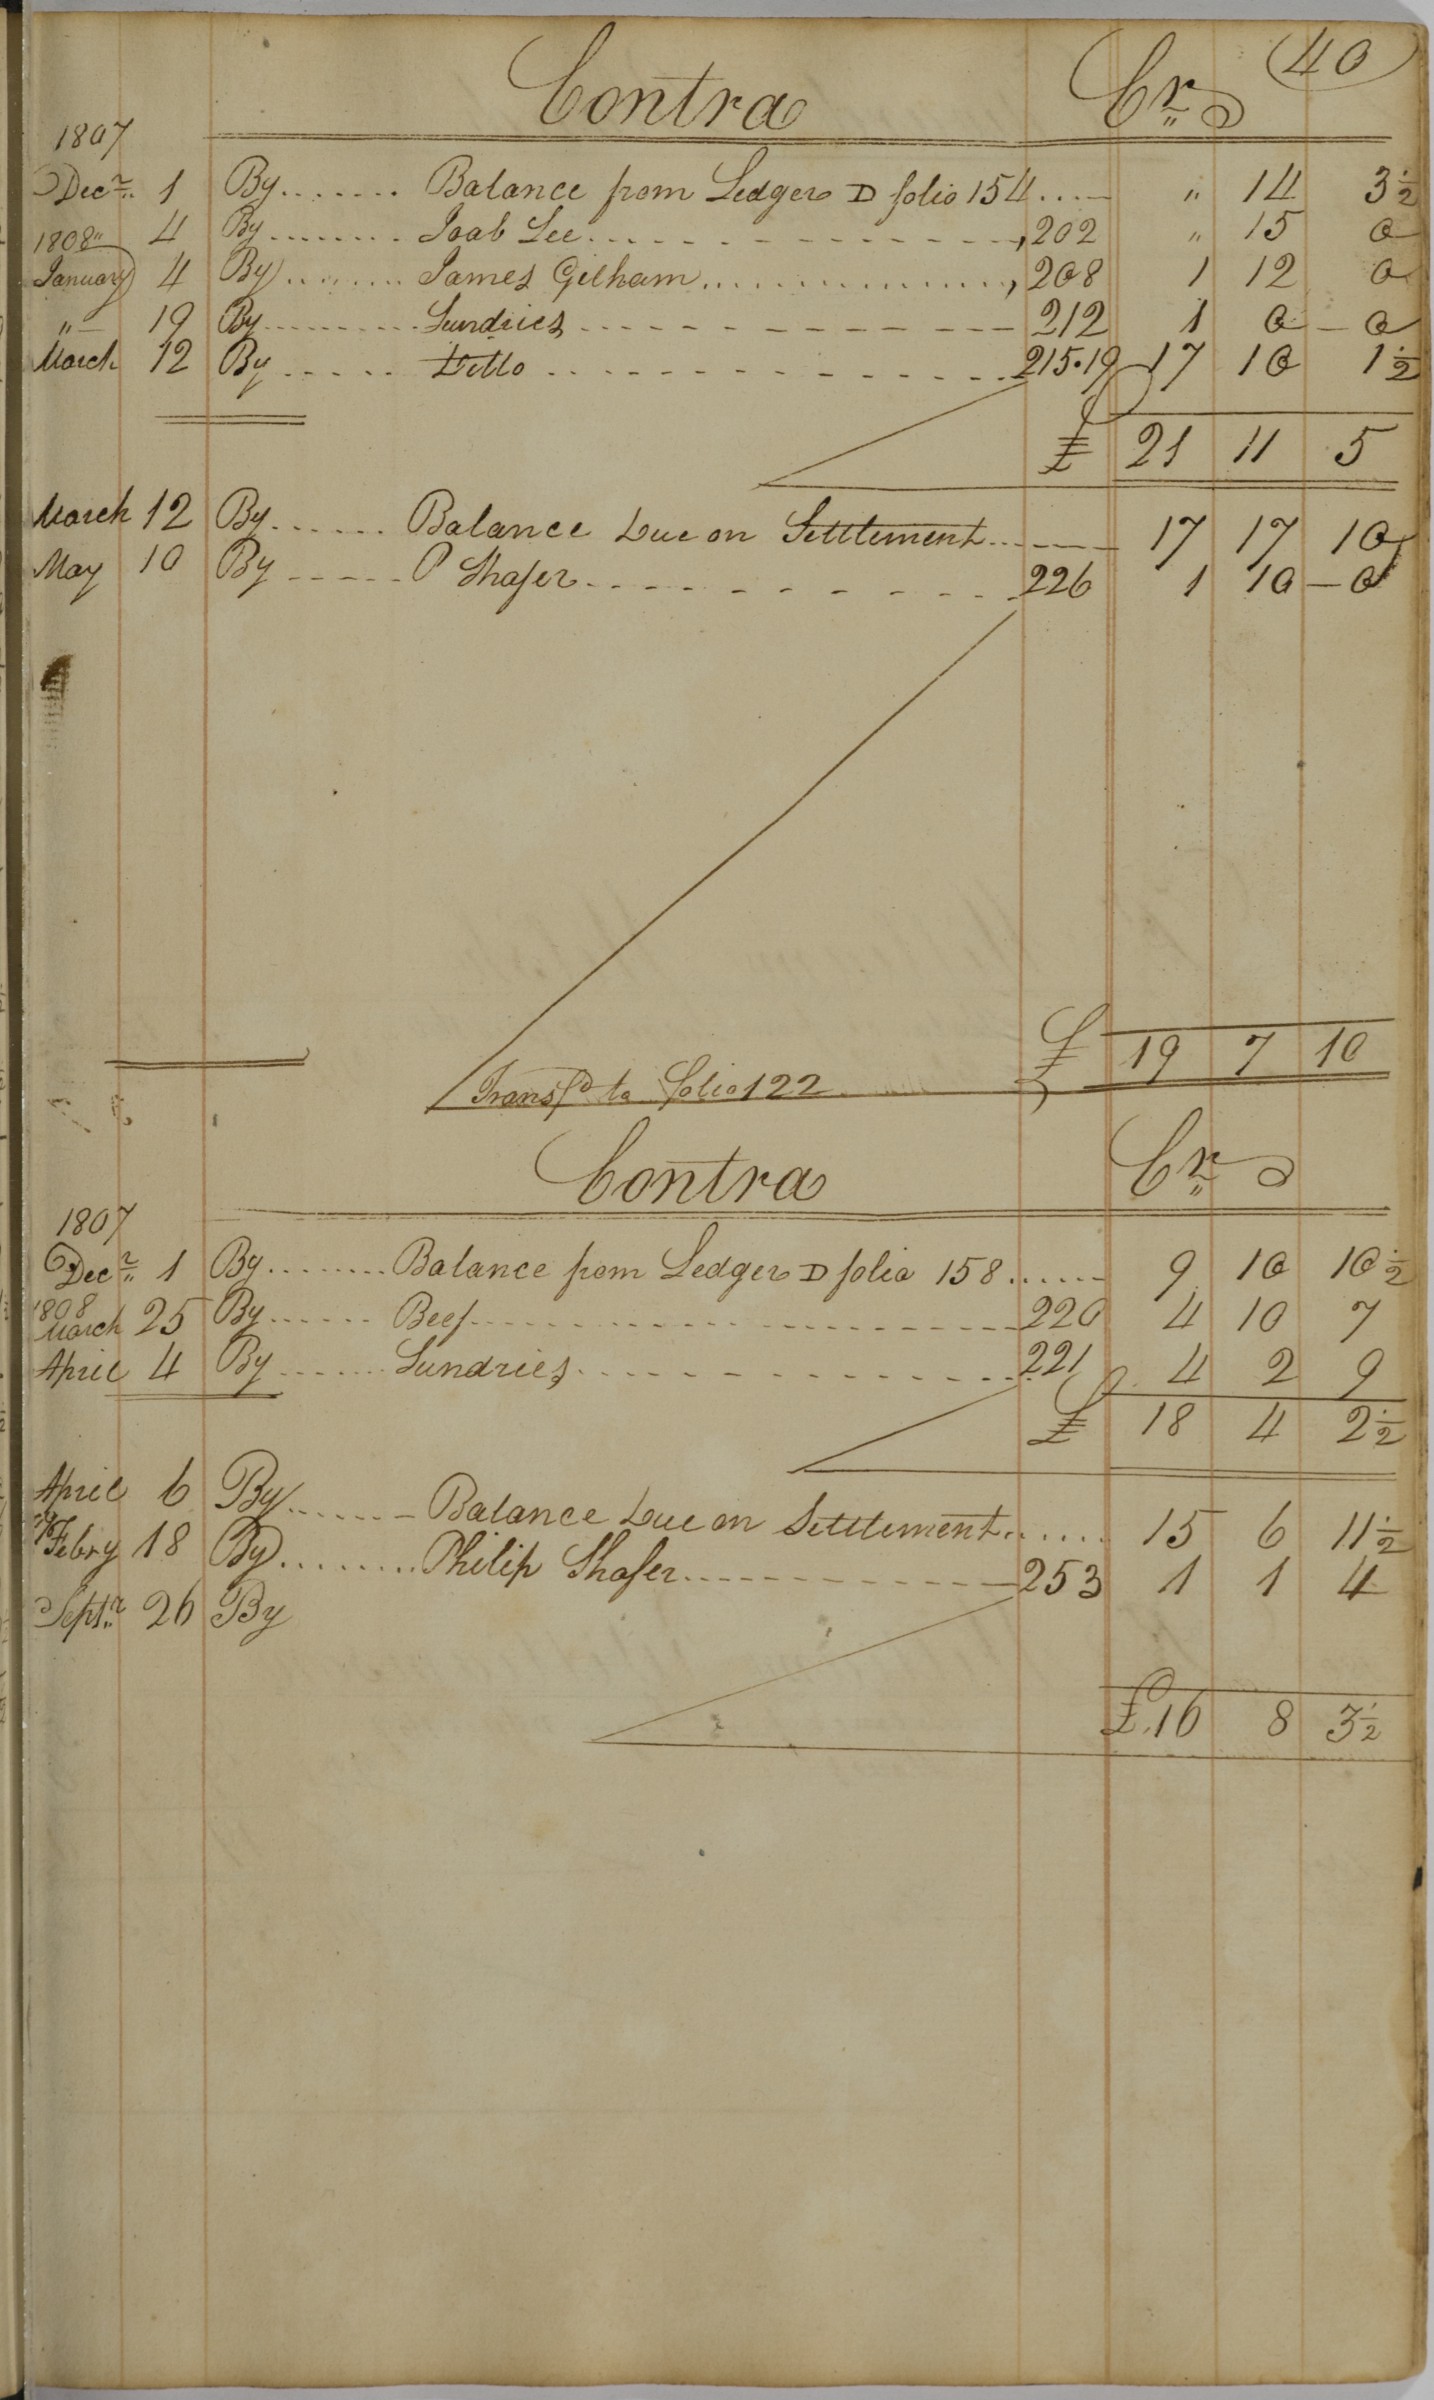 Contra Cr 40
1807
Decr 1 By....... Balance from Ledger D folio 154.... " 14 3½
4 By........ Joab Lee............ 202 " 15 0
1808
January 4 By........ James Gilham............ 208 1 12 0
" 19 By........ Sundries............ 212 1 0 — 0
March 12 By...... Ditto............ 215.19 17 10 1½
£ 21 11 5
March 12 By...... Balance Due on Settlement...... 17 17 10
May 10 By..... P Shafer............ 226 1 10 — 0
£ 19 7 10
Transfd to folio 122
Contra Cr
1807
Decr 1 By........ Balance from Ledger D folio 158...... 9 10 10½
1808
March 25 By...... Beef............ 220 4 10 7
April 4 By...... Sundries............ 221 4 2 9
£ 18 4 2½
April 6 By...... Balance Due on Settlement...... 15 6 11½
Febry 18 By........ Philip Shafer............ 253 1 1 4
Septr 26 By
£.16 8 3½